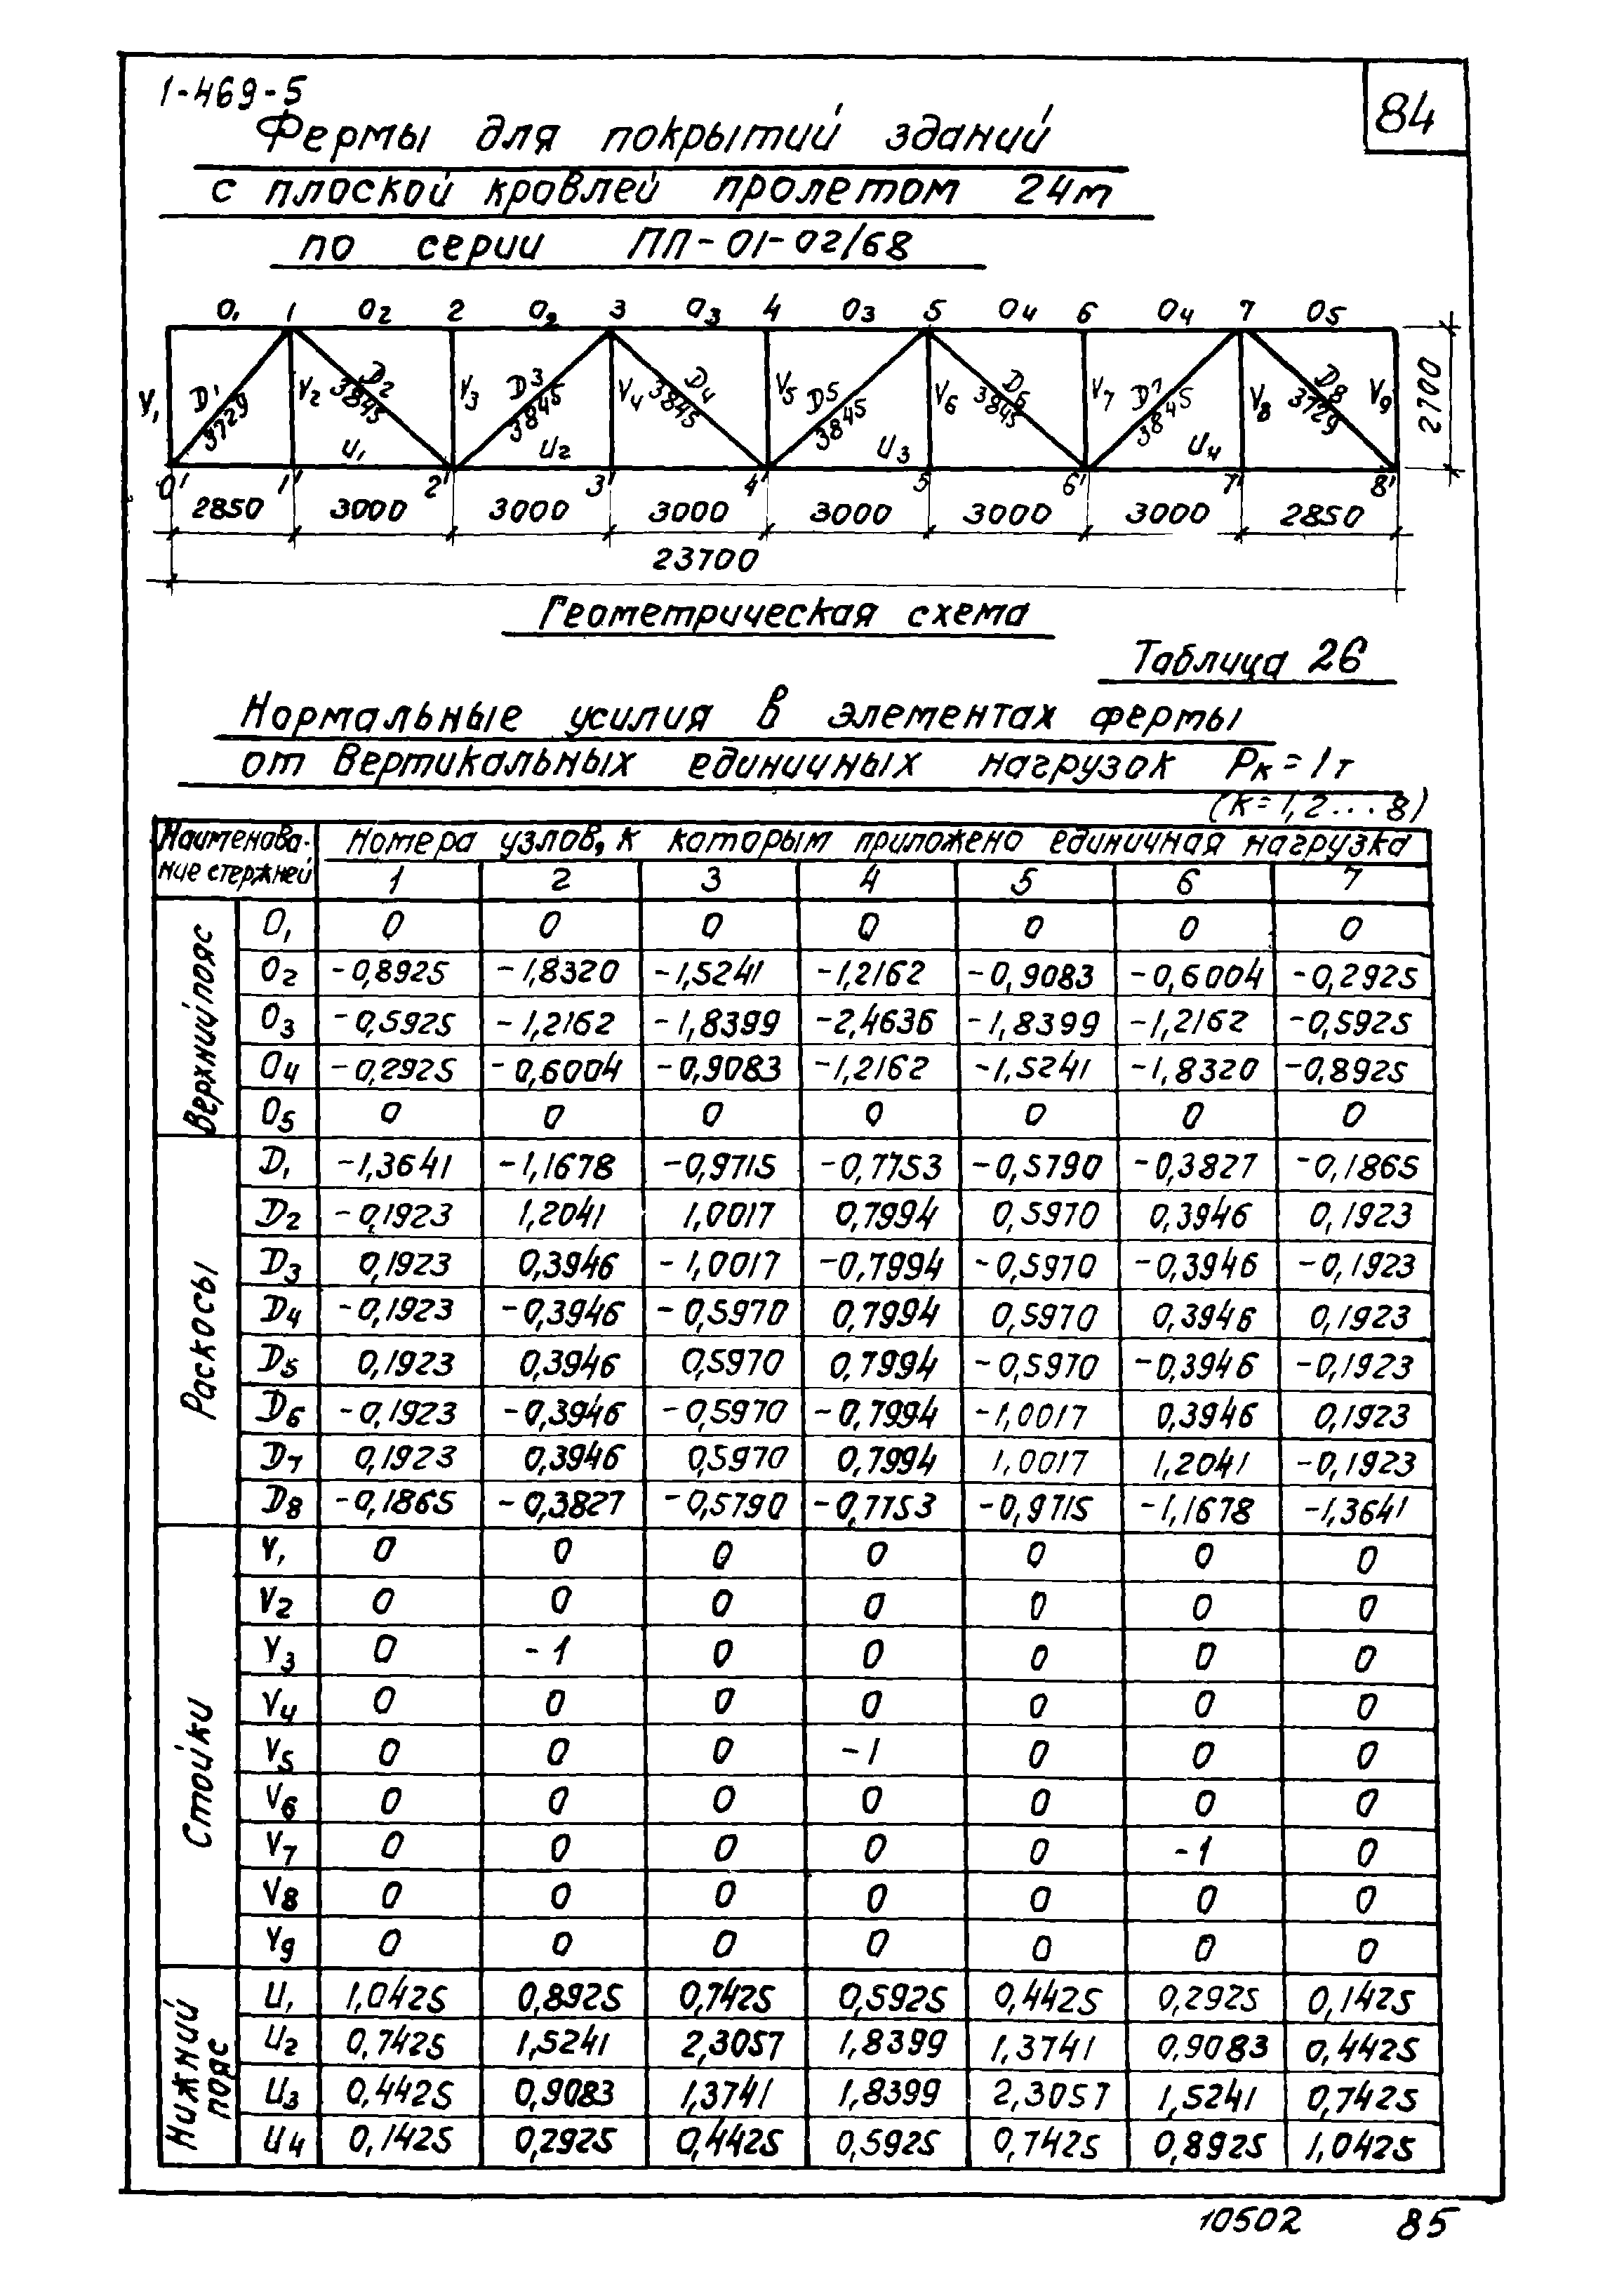 1-469-5
84
Фермы для покрытий зданий
с плоской кровлей пролетом 24м
по серии ПП-01-02/68
O1 1 O2 2 O2 3 O3 4 O3 5 O4 6 O4 7 O5
V1 D1 3729 V2 D2 3845 V3 D3 3845 V4 D4 3845 V5 D5 3845 V6 D6 3845 V7 D7 3845 V8 D8 3729 V9 2700
U1 U2 U3 U4
0' 1' 2' 3' 4' 5' 6' 7' 8'
2850 3000 3000 3000 3000 3000 3000 2850
23700
Геометрическая схема
Таблица 26
Нормальные усилия в элементах фермы
от вертикальных единичных нагрузок Рк=1т
(к=1,2...8)
Наименова-
ние стержней
Номера узлов, к которым приложена единичная нагрузка
1 2 3 4 5 6 7
Верхний пояс
O1 0 0 0 0 0 0 0
O2 -0,8925 -1,8320 -1,5241 -1,2162 -0,9083 -0,6004 -0,2925
O3 -0,5925 -1,2162 -1,8399 -2,4636 -1,8399 -1,2162 -0,5925
O4 -0,2925 -0,6004 -0,9083 -1,2162 -1,5241 -1,8320 -0,8925
O5 0 0 0 0 0 0 0
Раскосы
D1 -1,3641 -1,1678 -0,9715 -0,7753 -0,5790 -0,3827 -0,1865
D2 -0,1923 1,2041 1,0017 0,7994 0,5970 0,3946 0,1923
D3 0,1923 0,3946 -1,0017 -0,7994 -0,5970 -0,3946 -0,1923
D4 -0,1923 -0,3946 -0,5970 0,7994 0,5970 0,3946 0,1923
D5 0,1923 0,3946 0,5970 0,7994 -0,5970 -0,3946 -0,1923
D6 -0,1923 -0,3946 -0,5970 -0,7994 -1,0017 0,3946 0,1923
D7 0,1923 0,3946 0,5970 0,7994 1,0017 1,2041 -0,1923
D8 -0,1865 -0,3827 -0,5790 -0,7753 -0,9715 -1,1678 -1,3641
Стойки
V1 0 0 0 0 0 0 0
V2 0 0 0 0 0 0 0
V3 0 -1 0 0 0 0 0
V4 0 0 0 0 0 0 0
V5 0 0 0 -1 0 0 0
V6 0 0 0 0 0 0 0
V7 0 0 0 0 0 -1 0
V8 0 0 0 0 0 0 0
V9 0 0 0 0 0 0 0
Нижний
пояс
U1 1,0425 0,8925 0,7425 0,5925 0,4425 0,2925 0,1425
U2 0,7425 1,5241 2,3057 1,8399 1,3741 0,9083 0,4425
U3 0,4425 0,9083 1,3741 1,8399 2,3057 1,5241 0,7425
U4 0,1425 0,2925 0,4425 0,5925 0,7425 0,8925 1,0425
10502 85